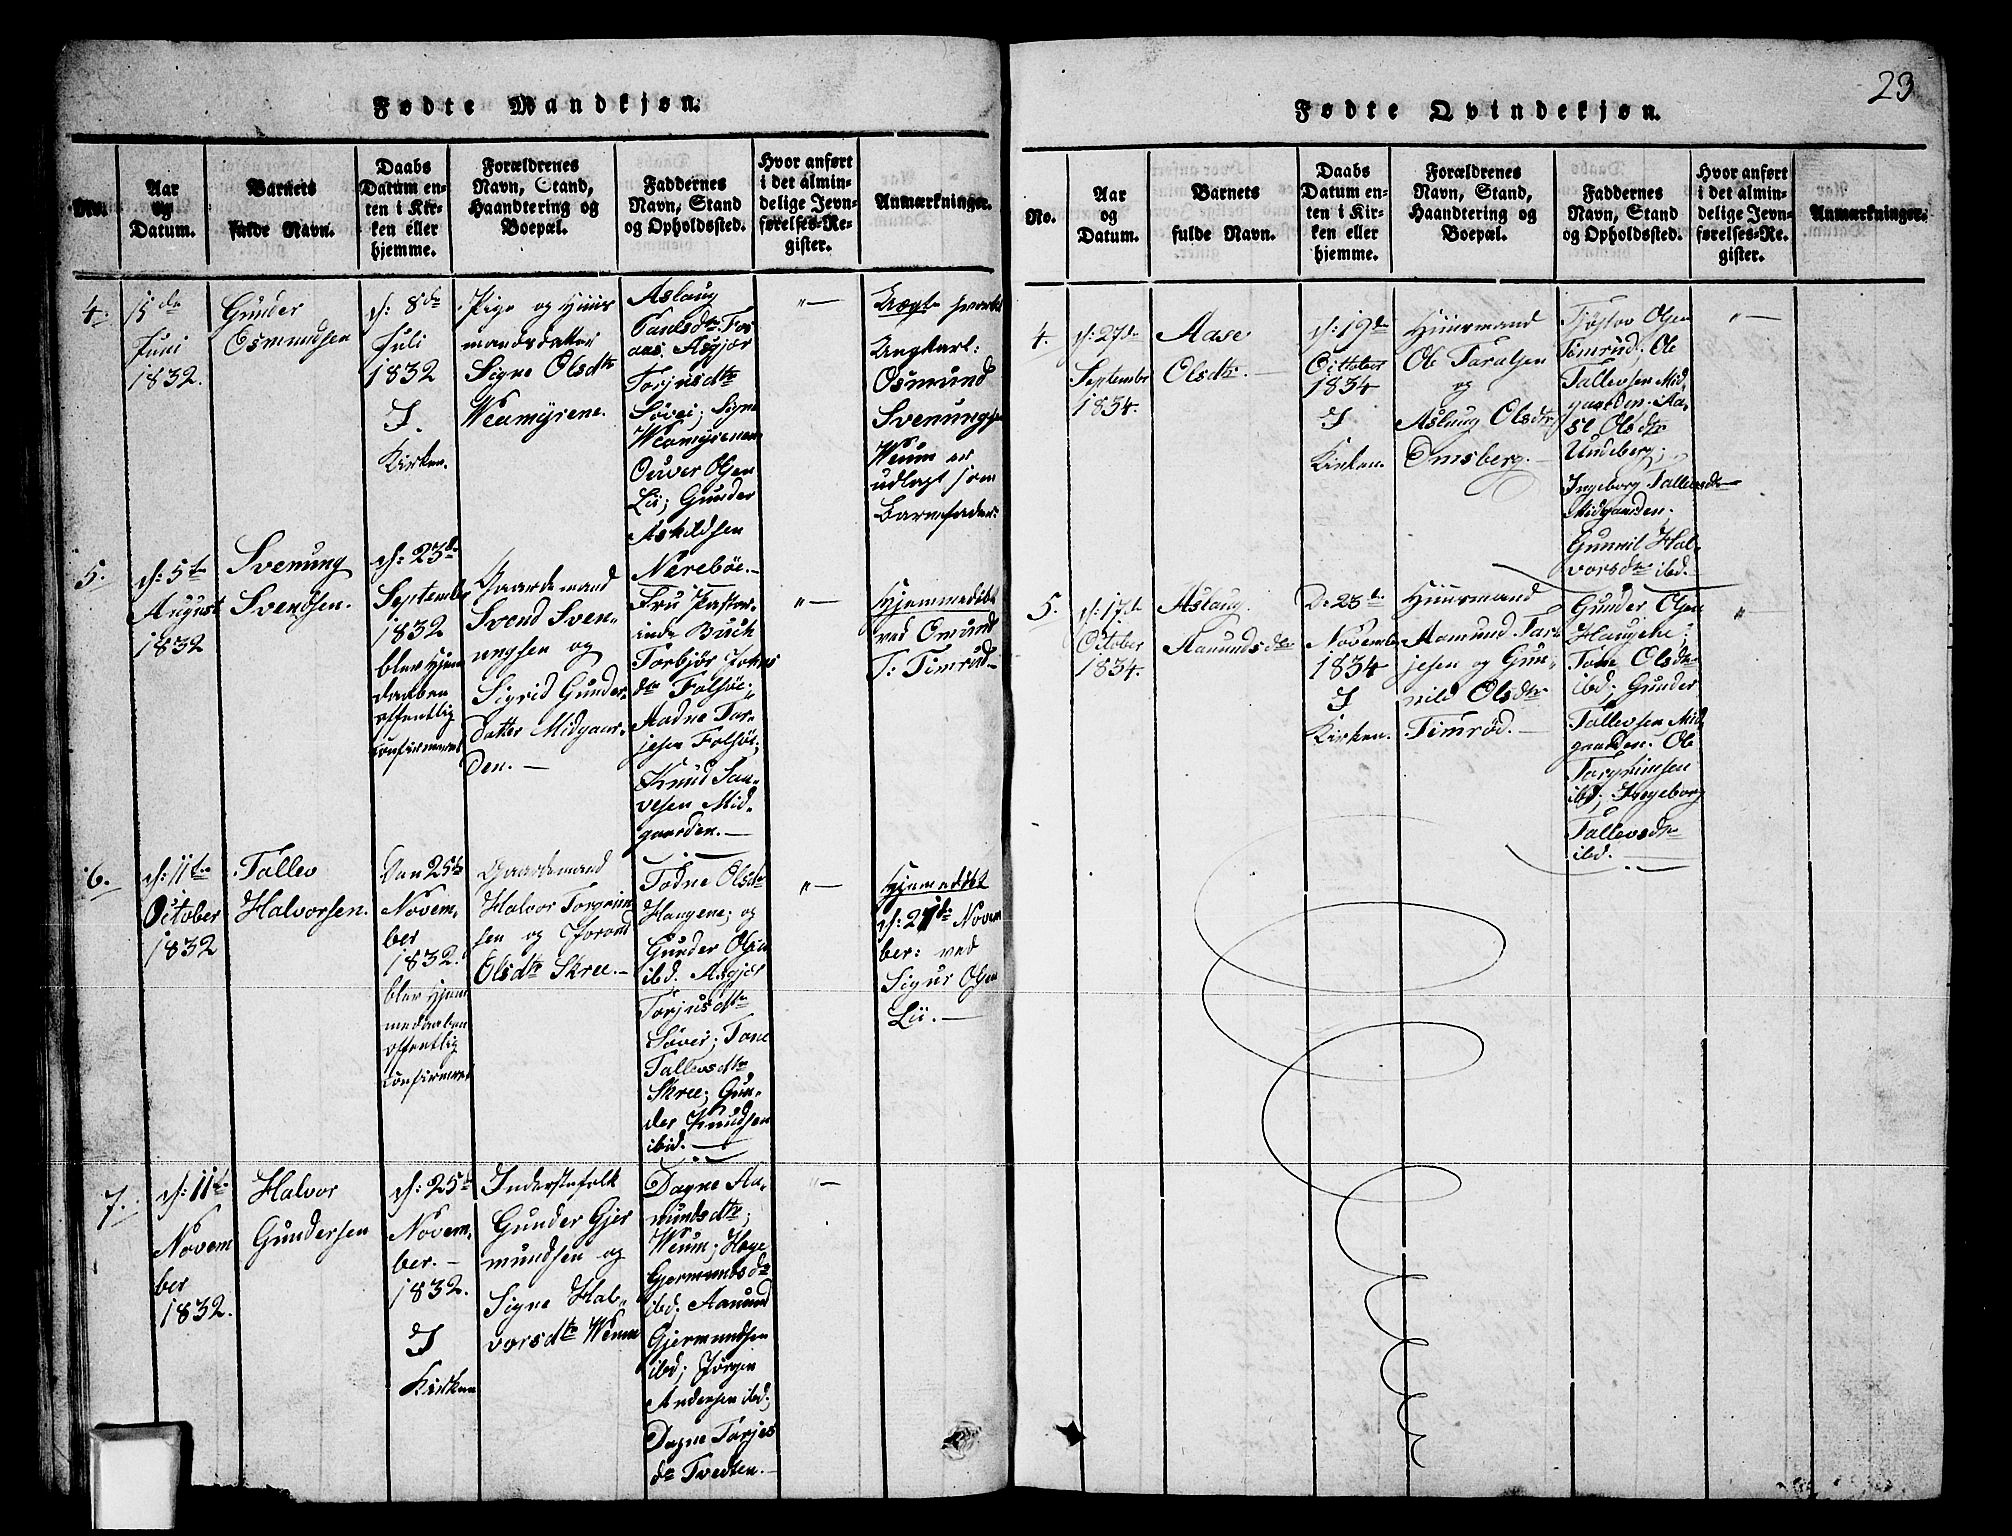 Fødte Mandkjøn.
No.
Aar
og
Datum.
Barnets
fulde Navn.
Daabs
Datum en-
ten i Kir-
ken eller
hjemme.
Forældrenes
Navn, Stand,
Haandtering og
Boepæl.
Faddernes
Navn, Stand
og Opholdssted.
Hvor anført
i det almin-
delige Jevn-
førelses-Re-
gister.
Anmærkninger.
4.
15de
Juni
1832.
Gunder
Osmundsen
d: 8de
Juli
1832
I
Kirken.
Pige og Huus
mandsdatter
Signe Olsdtr
Weamyrene.
Aslaug
Paulsdtr.
Asgjær
Torjusdtr
Søvei; Signe
Weamyrenen
Ouver Olsen
Lii; Gunder
Askildsen
Nerebøe.
"
Uægte
Ungkarl:
Osmund
Svenungsen
Weum er
udlagt som
Barnefader:
5.
d: 5te
August
1832
Svenung
Svendsen.
d: 23de
Septembr
1832
blev hjem
daaben
offentlig
confirmeret
Gaardemand
Svend Sven-
ungsen og
Sigrid Gunder-
datter Midgaar-
den.
Fru Pastor-
inde Buch
Torbjør Johns
dtr Folsøe;
Aadne Tar-
jesen Folsøe;
Knud Saa-
vesen Mid-
gaarden.
"
Hjemmedøbt
ved Omund
T: Timrud
6.
d: 11te
October
1832
Tallev
Halvorsen.
Den 25de
Novem-
ber
1832.
blev Hjem
medaaben
offentlig
confirmeret
Gaardemand
Halvor Torgrim
sen og
Olsdtr Skree.
Todne Olsdtr
Haugene; og
Gunder Olsen
ibd. Asgjær
Torjusdtr
Søvei; Tone
Tallevsdtr
Skree; Gun-
der Knudsen
ibid.
"
Hjemedøbt
d: 21de Novem
ber: ved
Sigur Olsen
Lii.
7.
d: 11te
Novem
ber
1832.
Halvor
Gundersen
d: 25de
Novem-
ber.
1832.
I
Kirken
Inderstefolk
Gunder Gjer
mundsen og
Signe Hal-
vorsdtr Weum
Dagne Aa-
mundsdtr;
Weum; Hæge
Gjermundsdtr
ibd; Aamund
Gjermundsen
ibd; Jørgen
Andersen ibd;
Dagne Tarjes
dtr Tvedten.
"
23
Fødte Qvindekjøn.
No.
Aar
og
Datum.
Barnets
fulde Navn.
Daabs
Datum en-
ten i Kir-
ken eller
hjemme.
Forældrenes
Navn, Stand,
Haandtering og
Boepæl.
Faddernes
Navn, Stand
og Opholdssted.
Hvor anført
i det almin-
delige Jevn-
førelses-Re-
gister.
Anmærkninger.
4.
d: 27de
Septembr
1834.
Aase
Olsdtr.
d: 19de
October
1834
I
Kirken.
Huusmand
Ole Taralsen
og
Aslaug Olsdtr
Omsberg.
Tjøstov Olsen
Timrud. Ole
Tallevsen Mid-
gaarden. Aa-
se Olsdtr
Undeberg;
Ingeborg Tallevsdtr
Midgaarden.
Gunnil Hal-
vorsdtr ibd.
"
5.
d: 17de
October
1834.
Aslaug
Aamundsdtr
De 23de
Novembr
1834
I
Kirken.
Huusmand
Aamund Tar-
jesen og Gun-
nild Olsdtr
Timrød.
Gunder Olsen
Haugene;
Tone Olsdtr
ibd; Gunder
Tallevsen Mid
gaarden. Ole
Torgrimsen
ibd; Ingeborg
Tallevsdtr
ibd.
"